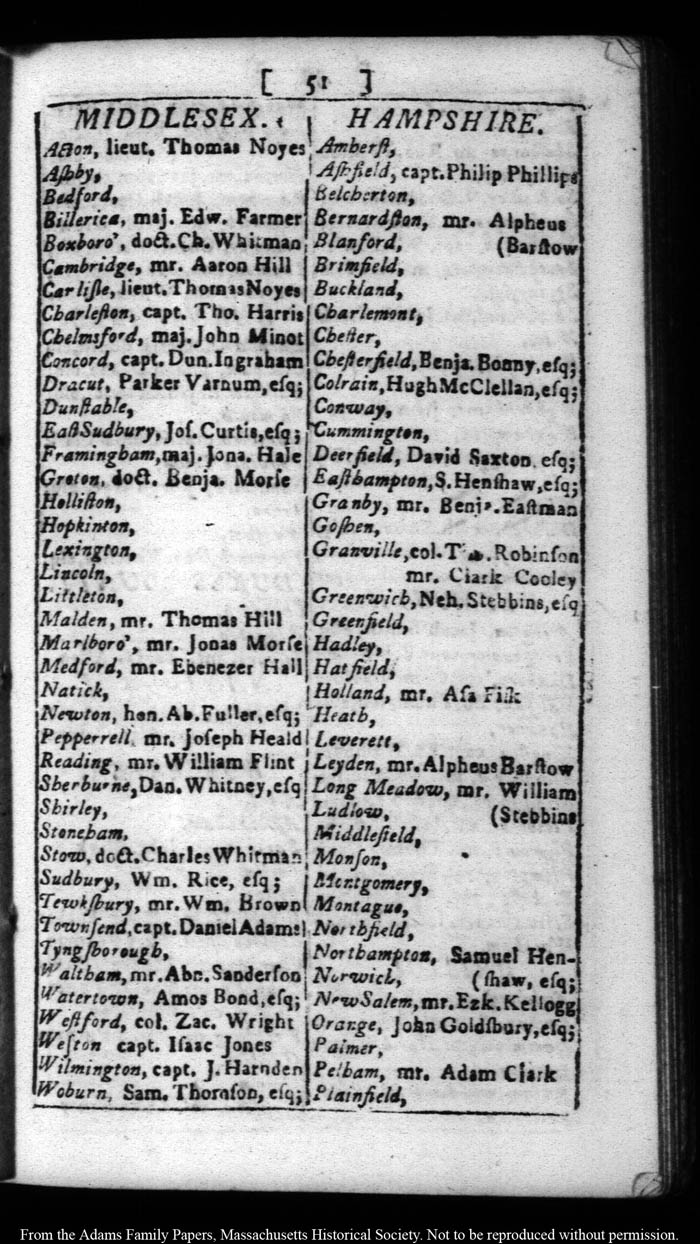 [ 51 ]
MIDDLESEX.
Acton, lieut. Thomas Noyes
Aſhby,
Bedford,
Billerica, maj. Edw. Farmer
Boxboro', doct. Ch. Whitman
Cambridge, mr. Aaron Hill
Carliſle, lieut. Thomas Noyes
Charleſton, capt. Tho. Harris
Chelmsford, maj. John Minot
Concord, capt. Dun. Ingraham
Dracut, Parker Varnum, eſq;
Dunſtable,
Eaſt Sudbury, Joſ. Curtis, eſq;
Framingham, maj. Jona. Hale
Groton, doct. Benja. Morſe
Holliſton,
Hopkinton,
Lexington,
Lincoln,
Littleton,
Malden, mr. Thomas Hill
Marlboro', mr. Jonas Morſe
Medford, mr. Ebenezer Hall
Natick,
Newton, hon. Ab. Fuller, eſq;
Pepperrell, mr. Joſeph Heald
Reading, mr. William Flint
Sherburne, Dan. Whitney, eſq
Shirley,
Stoneham,
Stow, doct. Charles Whitman
Sudbury, Wm. Rice, eſq;
Tewkſbury, mr. Wm. Brown
Townſend, capt. Daniel Adams
Tyngſborough,
Waltham, mr. Abn. Sanderſon
Watertown, Amos Bond, eſq;
Weſtford, col. Zac. Wright
Weſton capt. Iſaac Jones
Wilmington, capt. J. Harnden
Woburn, Sam. Thomſon, eſq;
HAMPSHIRE.
Amherſt,
Aſhfield, capt. Philip Phillips
Belcherton,
Bernardſton, mr. Alpheus
Blanford, (Barſtow
Brimfield,
Buckland,
Charlemont,
Cheſter,
Cheſterfield, Benja. Bonny, eſq;
Colrain, Hugh McClellan, eſq;
Conway,
Cummington,
Deerfield, David Saxton eſq;
Eaſthampton, S. Henſhaw, eſq;
Granby, mr. Benja. Eaſtman
Goſhen,
Granville, col. Robinſon
mr. Clark Cooley
Greenwich, Neh. Stebbins, eſq
Greenfield,
Hadley,
Hatfield,
Holland, mr. Aſa Fiſk
Heath,
Leverett,
Leyden, mr. Alpheus Barſtow
Long Meadow, mr. William
Ludlow, (Stebbins
Middlefield,
Monſon,
Montgomery,
Montague,
Northfield,
Northampton, Samuel Hen-
Norwich, (ſhaw, eſq;
New Salem, mr. Ezk. Kellogg
Orange, John Goldſbury, eſq;
Palmer,
Pelham, mr. Adam Clark
Plainfield,
From the Adams Family Papers, Massachusetts Historical Society. Not to be reproduced without permission.